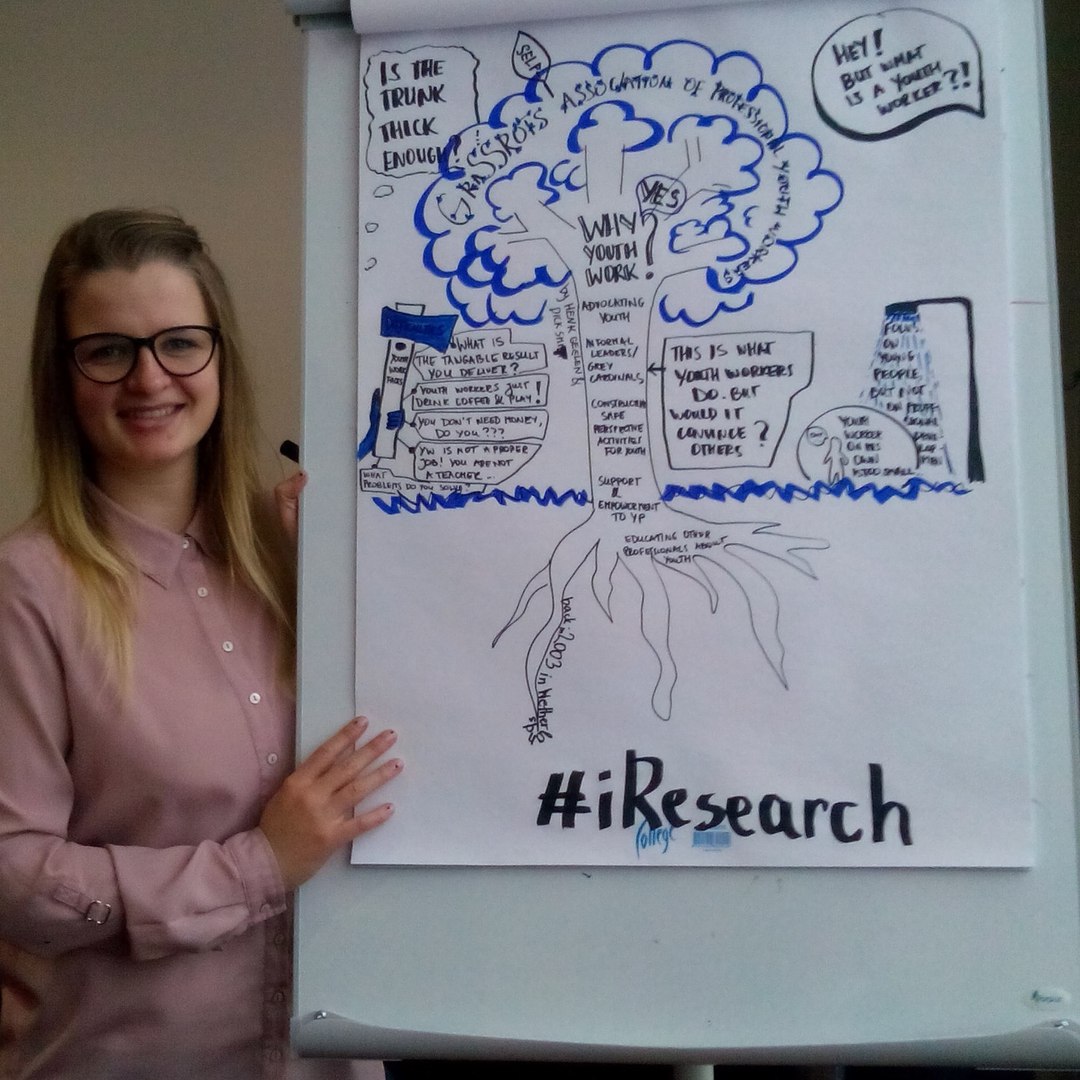 IS THE
TRUNK
THICK
ENOUGH?
SELF
GRASSROOTS ASSOCIATION OF PROFESSIONAL YOUTH WORKERS
HEY!
BUT WHAT
IS A YOUTH
WORKER?!
YES
WHY
YOUTH
WORK?
by HENK GEELEN &
DICK SMIT
ADVOCATING
YOUTH
INFORMAL
LEADERS/
GREY
CARDINALS
SAFE
ACTIVITIES
FOR YOUTH
SUPPORT
&
EMPOWERMENT
TO YP
EDUCATING OTHER
PROFESSIONALS ABOUT
YOUTH
YOUTH
WORK
WHAT IS
THE TANGABLE RESULT
YOU DELIVER?
YOUTH WORKERS JUST
DRINK COFFEE & PLAY!
YOU DON'T NEED MONEY,
DO YOU???
YW IS NOT A PROPER
JOB! YOU ARE NOT
A TEACHER...
WHAT
PROBLEMS DO YOU SOLVE?
THIS IS WHAT
YOUTH WORKERS
DO. BUT
WOULD IT
CONVINCE ?
OTHERS
FOCUS
ON
YOUNG
PEOPLE,
BUT NOT
ON PROFF-
SIONAL
DEVE
LOP
MEN
YOUR
WORKER
ON HIS
OWN
ALSO SMALL
back in 2003 in Netherla
nds
#iResearch
College